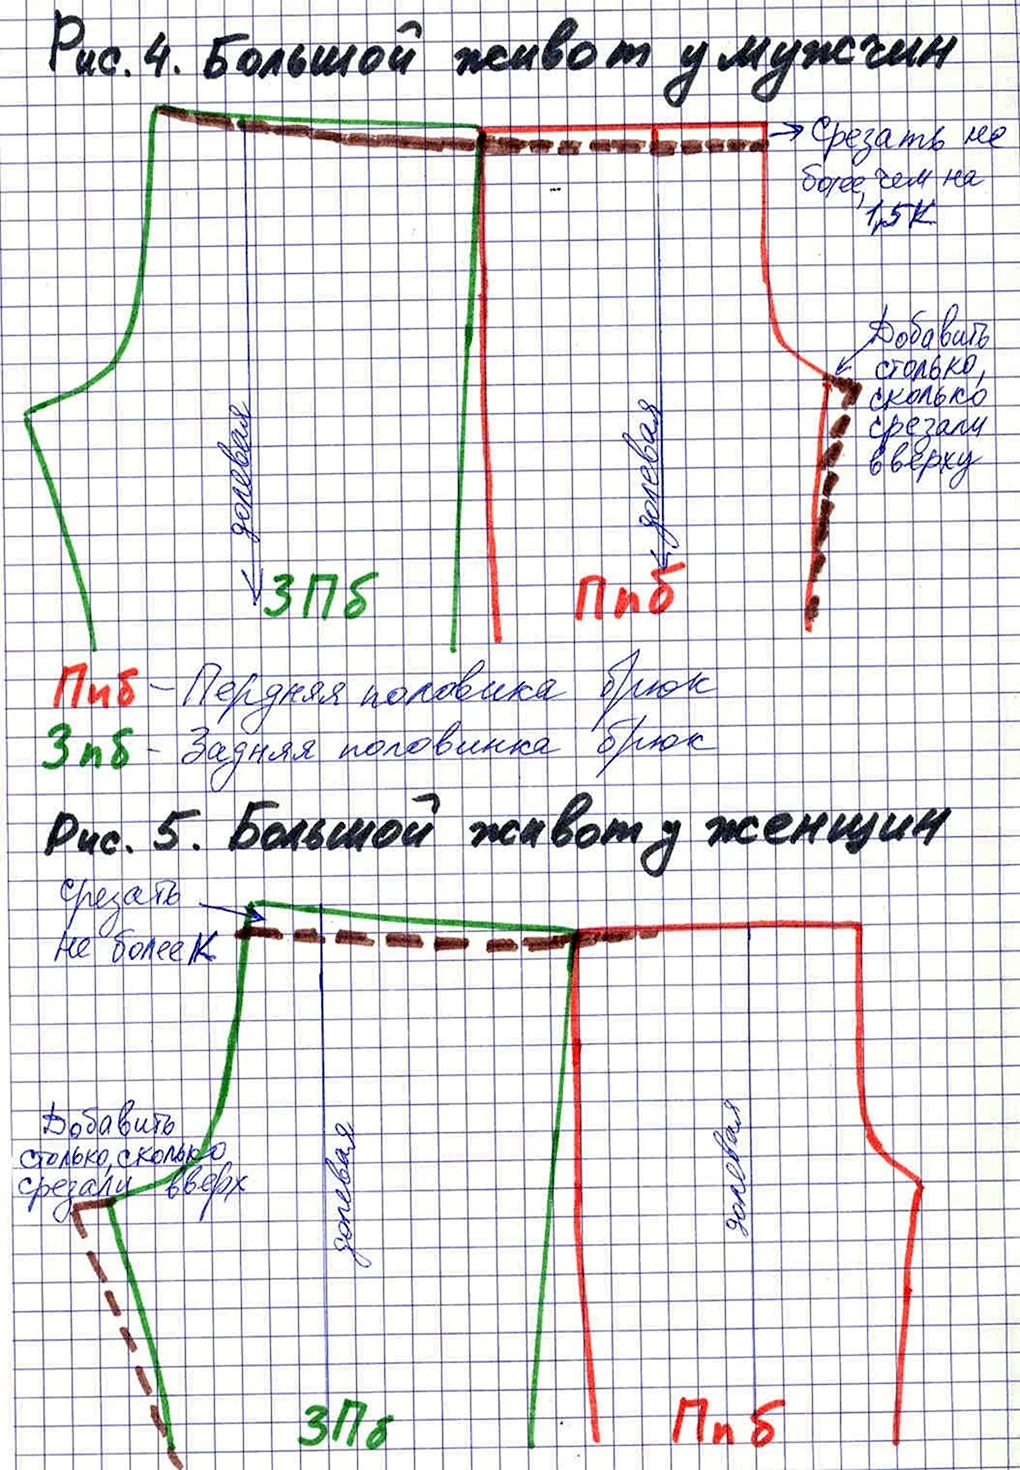 Рис. 4. Большой живот у мужчин
Срезать не
более, чем на
1,5К
Добавить
столько,
сколько
срезали
вверху
долевая
долевая
ЗПб
Ппб
Ппб – Пердняя половинка брюк
Зпб – Задняя половинка брюк
Рис. 5. Большой живот у женщин
Срезать
не более К
Добавить
столько, сколько
срезали вверх
долевая
долевая
ЗПб
Ппб